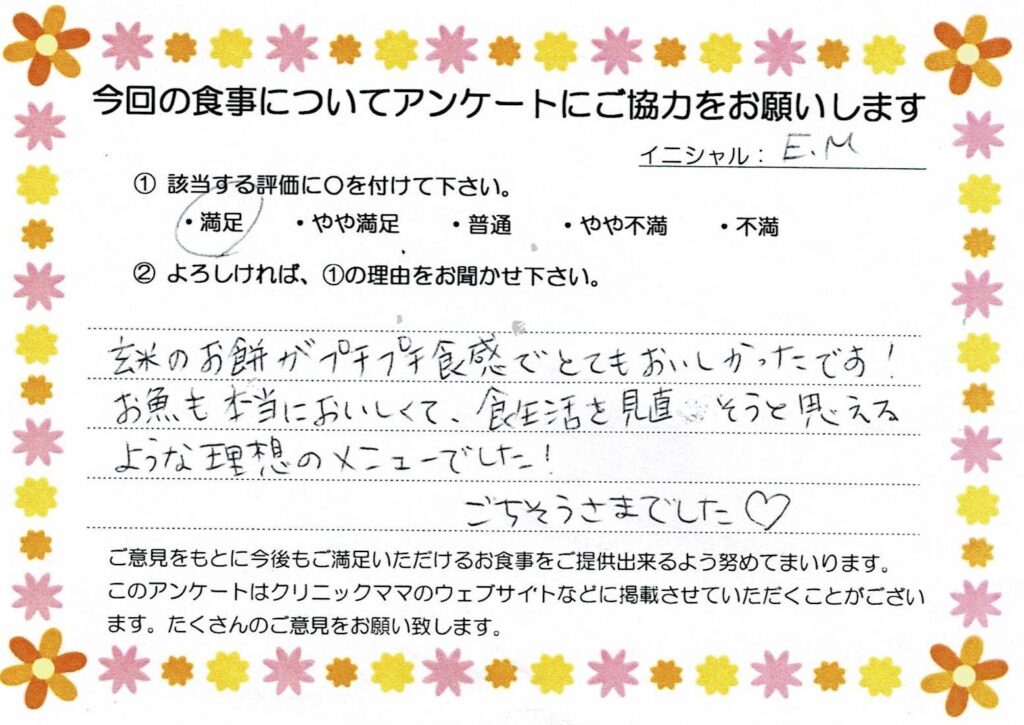 今回の食事についてアンケートにご協力をお願いします
イニシャル: E.M
① 該当する評価に〇を付けて下さい。
・満足 ・やや満足 ・普通 ・やや不満 ・不満
② よろしければ、①の理由をお聞かせ下さい。
玄米のお餅がプチプチ食感でとてもおいしかったです!
お魚も本当においしくて、食生活を見直そうと思える
ような理想のメニューでした!
ごちそうさまでした♡
ご意見をもとに今後もご満足いただけるお食事をご提供出来るよう努めてまいります。
このアンケートはクリニックママのウェブサイトなどに掲載させていただくことがござい
ます。たくさんのご意見をお願い致します。